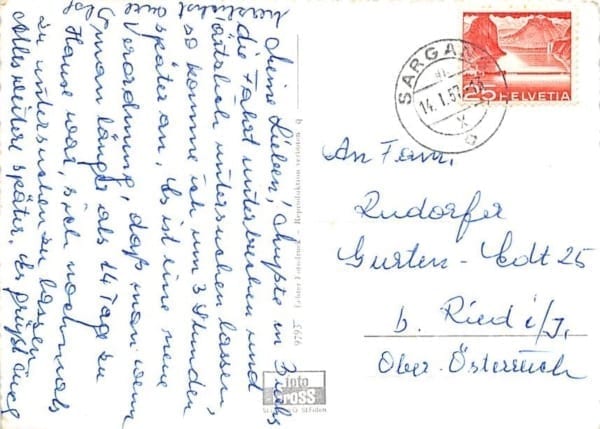 Meine Lieben! Mußte in Buchs
die Fahrt unterbrechen und
ärztlich untersuchen lassen,
so komme ich um 3 Stunden
später an. Es ist eine neue
Verordnung, daß man wenn
man länger als 14 Tage zu
Hause war, sich nochmals
zu untersuchen zu lassen.
Alles weitere später. Es grüßt Euch
herzlichst
Eure
Echter Fotodruck - Reproduktion verboten
foto
GROSS
SARGANS
14.1.57
25 HELVETIA
An Fam.
Rudorfer
Gurten - Edt 25
b. Ried i/I.
Ober-Österreich